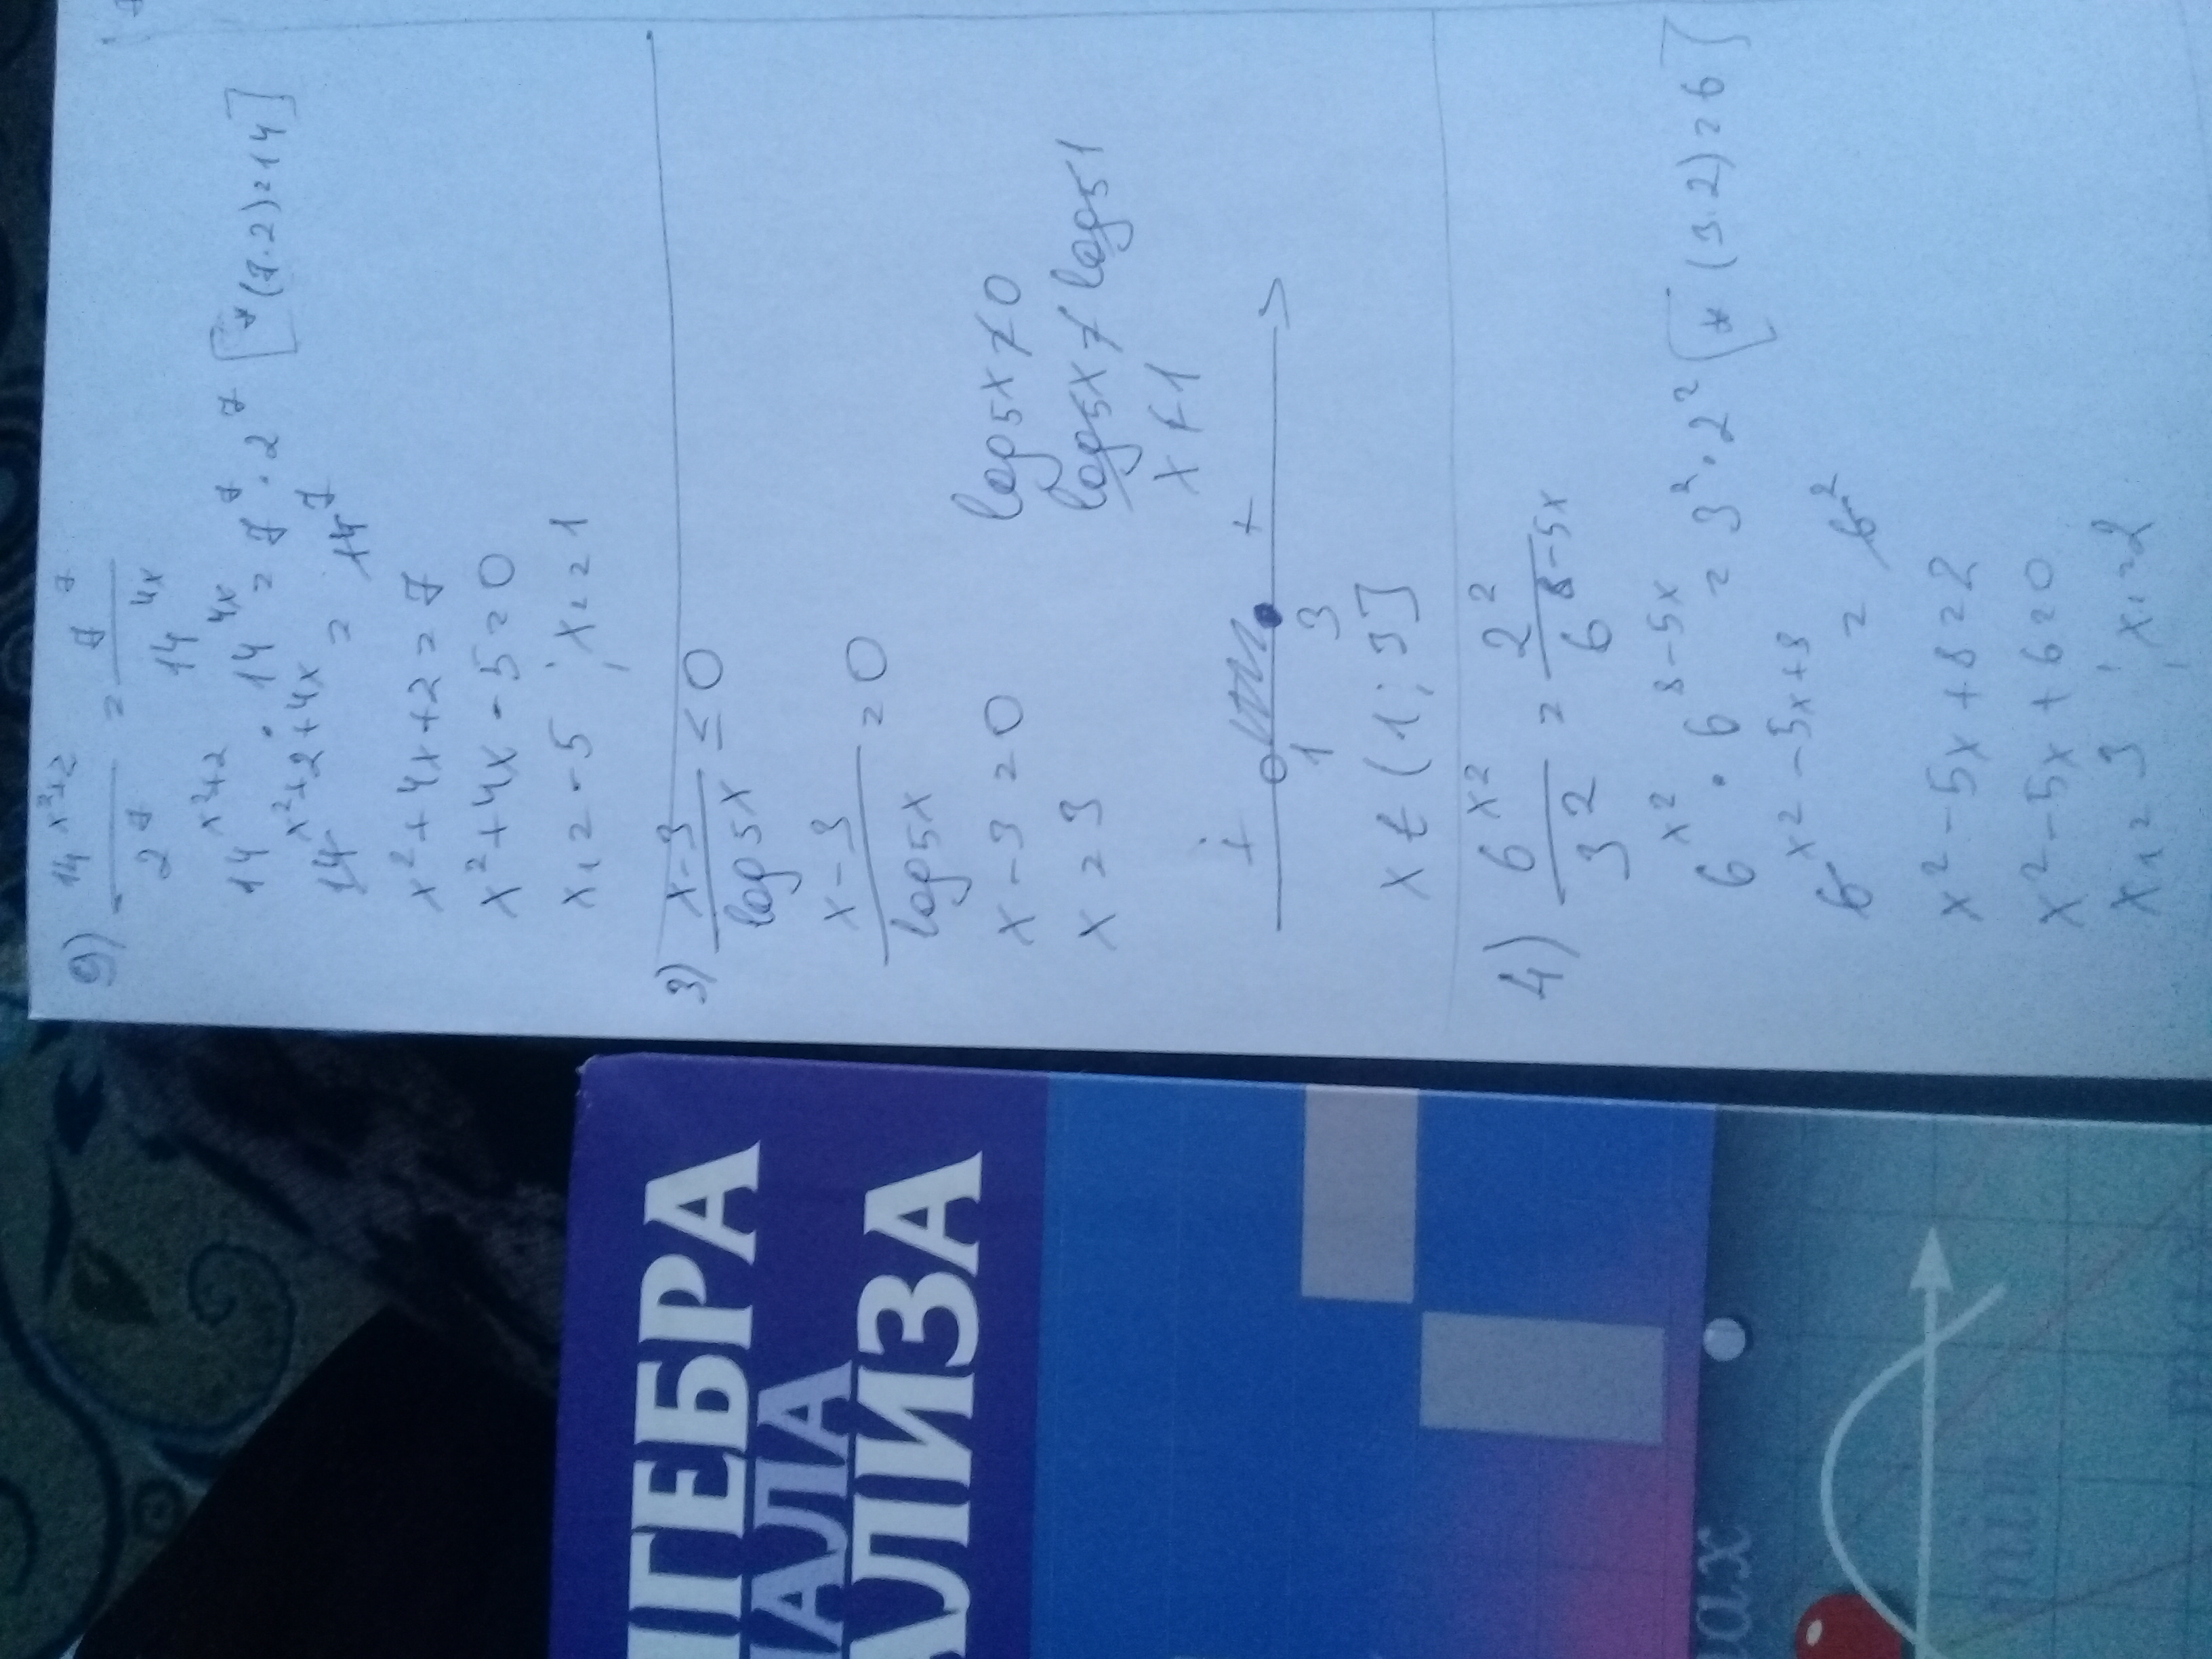 9) 14^(x²+2) / 2^7 = 7^7 / 14^(4x)
14^(x²+2) · 14^(4x) = 7^7 · 2^7 [* (7·2)=14]
14^(x²+2+4x) = 14^7
x²+4x+2=7
x²+4x-5=0
x₁=-5 ; x₂=1
3) (x-3) / log₅x ≤ 0
(x-3) / log₅x = 0
x-3=0 log₅x≠0
x=3 log₅x≠log₅1
x≠1
+ +
1 3
x ∈ (1; 3]
4) 6^(x²) / 3² = 2² / 6^(8-5x)
6^(x²) · 6^(8-5x) = 3² · 2² [* (3·2)=6]
6^(x²-5x+8) = 6²
x²-5x+8=2
x²-5x+6=0
x₁=3 ; x₂=2
ГЕБРА
АЛА
АЛИЗА
ax
min